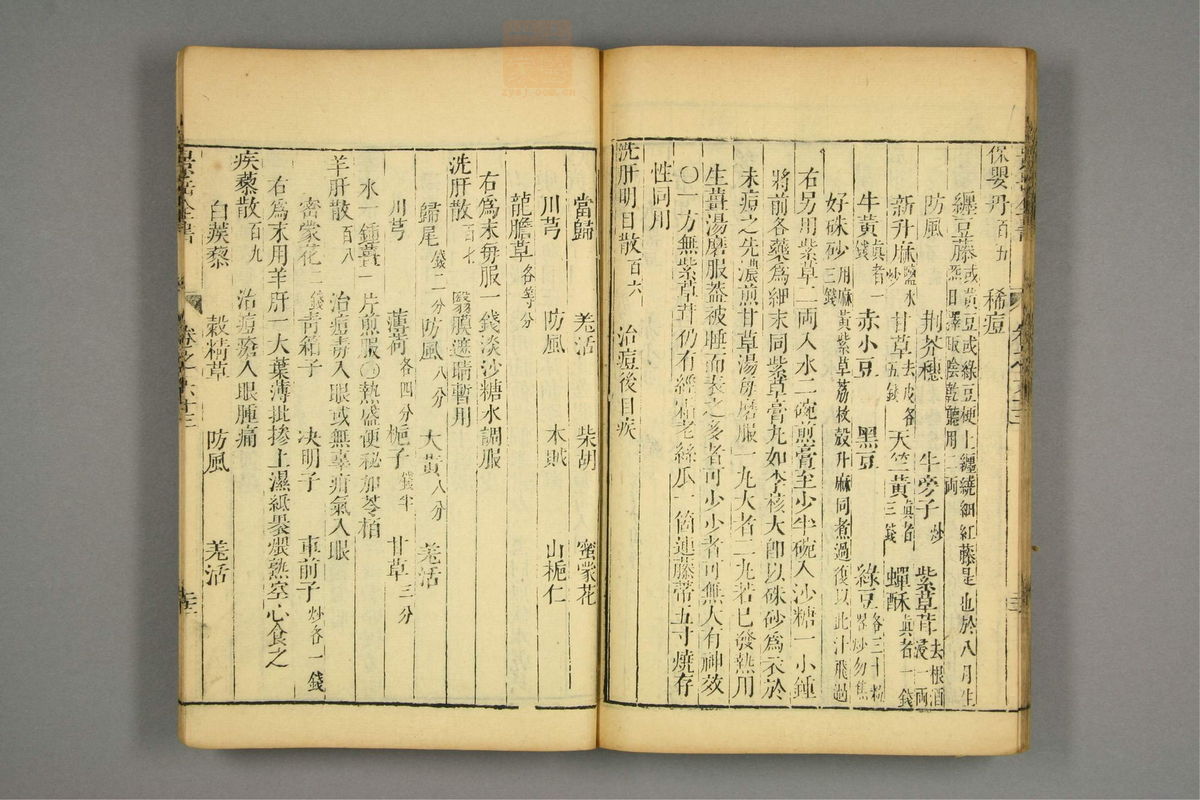 保嬰丹百五　稀痘
纏豆藤或黃豆或綠豆梗上纏繞細紅藤是也於八月生
氣日擇取陰乾聽用二兩
防風　荊芥穗　牛旁子炒　紫草茸去根酒浸一兩
新升麻鹽水炒　甘草去皮各五錢　天竺黃真者三錢　蟬酥真者一錢
牛黃真者一錢　赤小豆　黑豆　綠豆各三十粒畧炒勿焦
好硃砂三錢用麻黃紫草荔枝殼升麻同煮過復以此汁飛過
右另用紫草二兩入水二碗煎膏至少半碗入沙糖一小鍾
將前各藥爲細末同紫草膏丸如李核大卽以硃砂爲衣於
未痘之先濃煎甘草湯每磨服一九大者二九若已發熱用
生薑湯磨服蓋被睡而表之多者可少少者可無大有神效
〇一方無紫草茸仍有經霜老絲瓜一箇連藤蒂五寸燒存
性同用
洗肝明目散百六　治痘後目疾
當歸　羌活　柴胡　蜜蒙花
川芎　防風　木賊　山梔仁
龍膽草各等分
右爲末每服一錢淡沙糖水調服
洗肝散百七　翳膜遮睛暫用
歸尾二分　防風八分　大黃八分　羌活
川芎　薄荷各四分　梔子錢半　甘草三分
水一鍾薑一片煎服〇熱盛便秘加芩柏
羊肝散百八　治痘毒入眼或無辜疳氣入眼
密蒙花二錢　青箱子　决明子　車前子炒各一錢
右爲末用羊肝一大葉薄批摻上濕紙裹煨熟空心食之
疾藜散百九　治痘瘡入眼腫痛
白蒺藜　穀精草　防風　羌活
景岳全書　卷之六十三